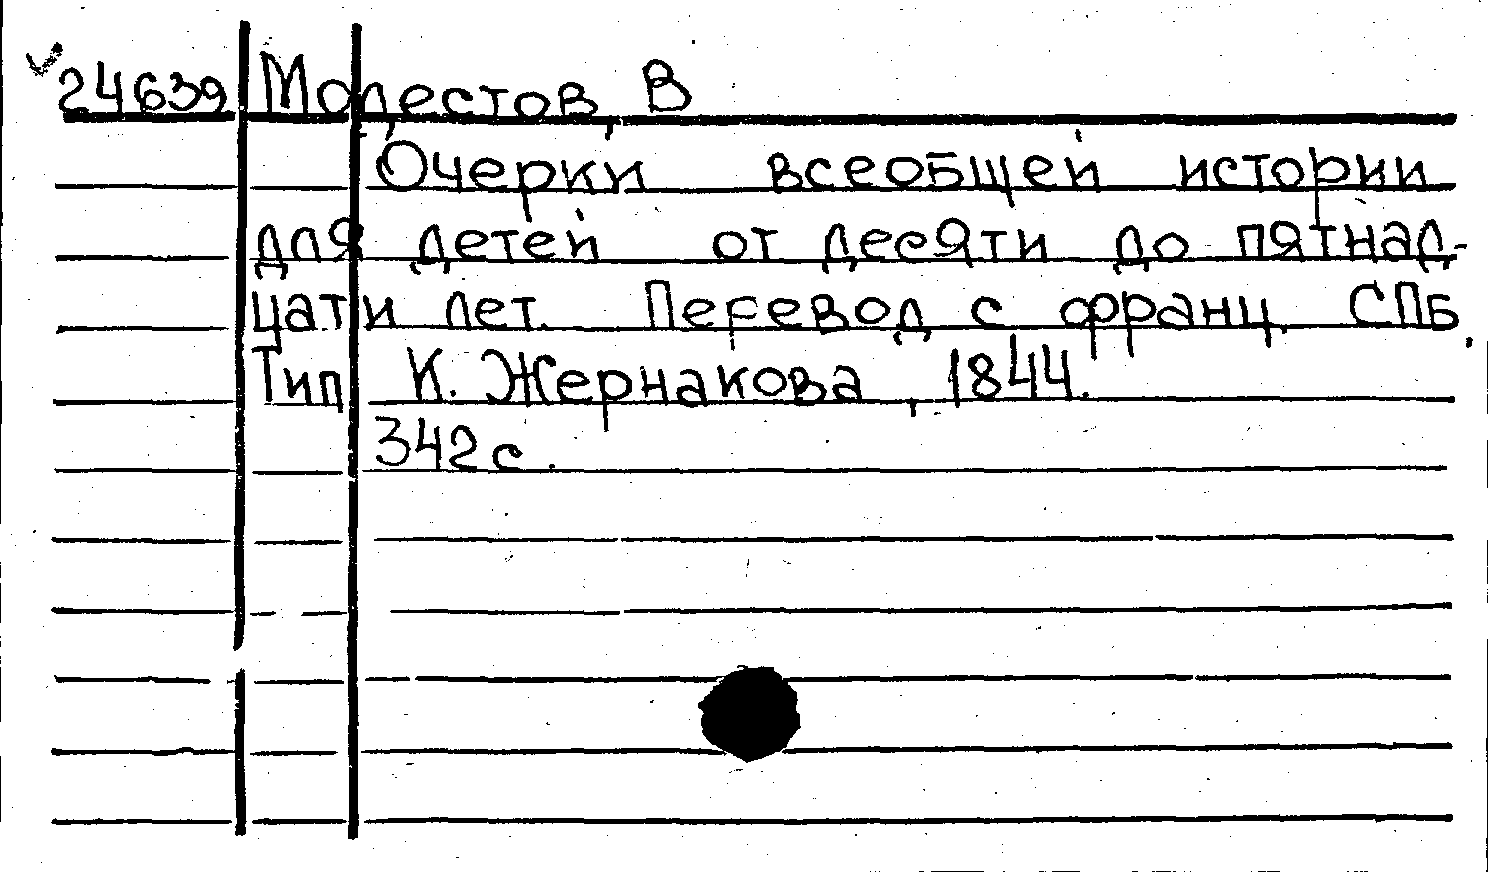 24639 Модестов, В
Очерки всеобщей истории
для детей от десяти до пятнад-
цати лет. Перевод с франц. СПБ,
Тип К. Жернакова, 1844.
342 с.